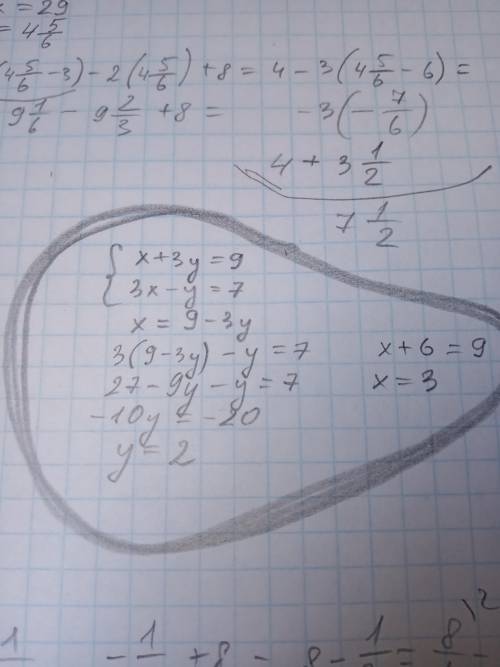 x = 29
= 4 5/6
(4 5/6 - 3) - 2(4 5/6) + 8 = 4 - 3(4 5/6 - 6) =
9 1/6 - 9 2/3 + 8 = - 3(- 7/6)
4 + 3 1/2
7 1/2
{ x + 3y = 9
3x - y = 7
x = 9 - 3y
3(9 - 3y) - y = 7 x + 6 = 9
27 - 9y - y = 7 x = 3
-10y = -20
y = 2